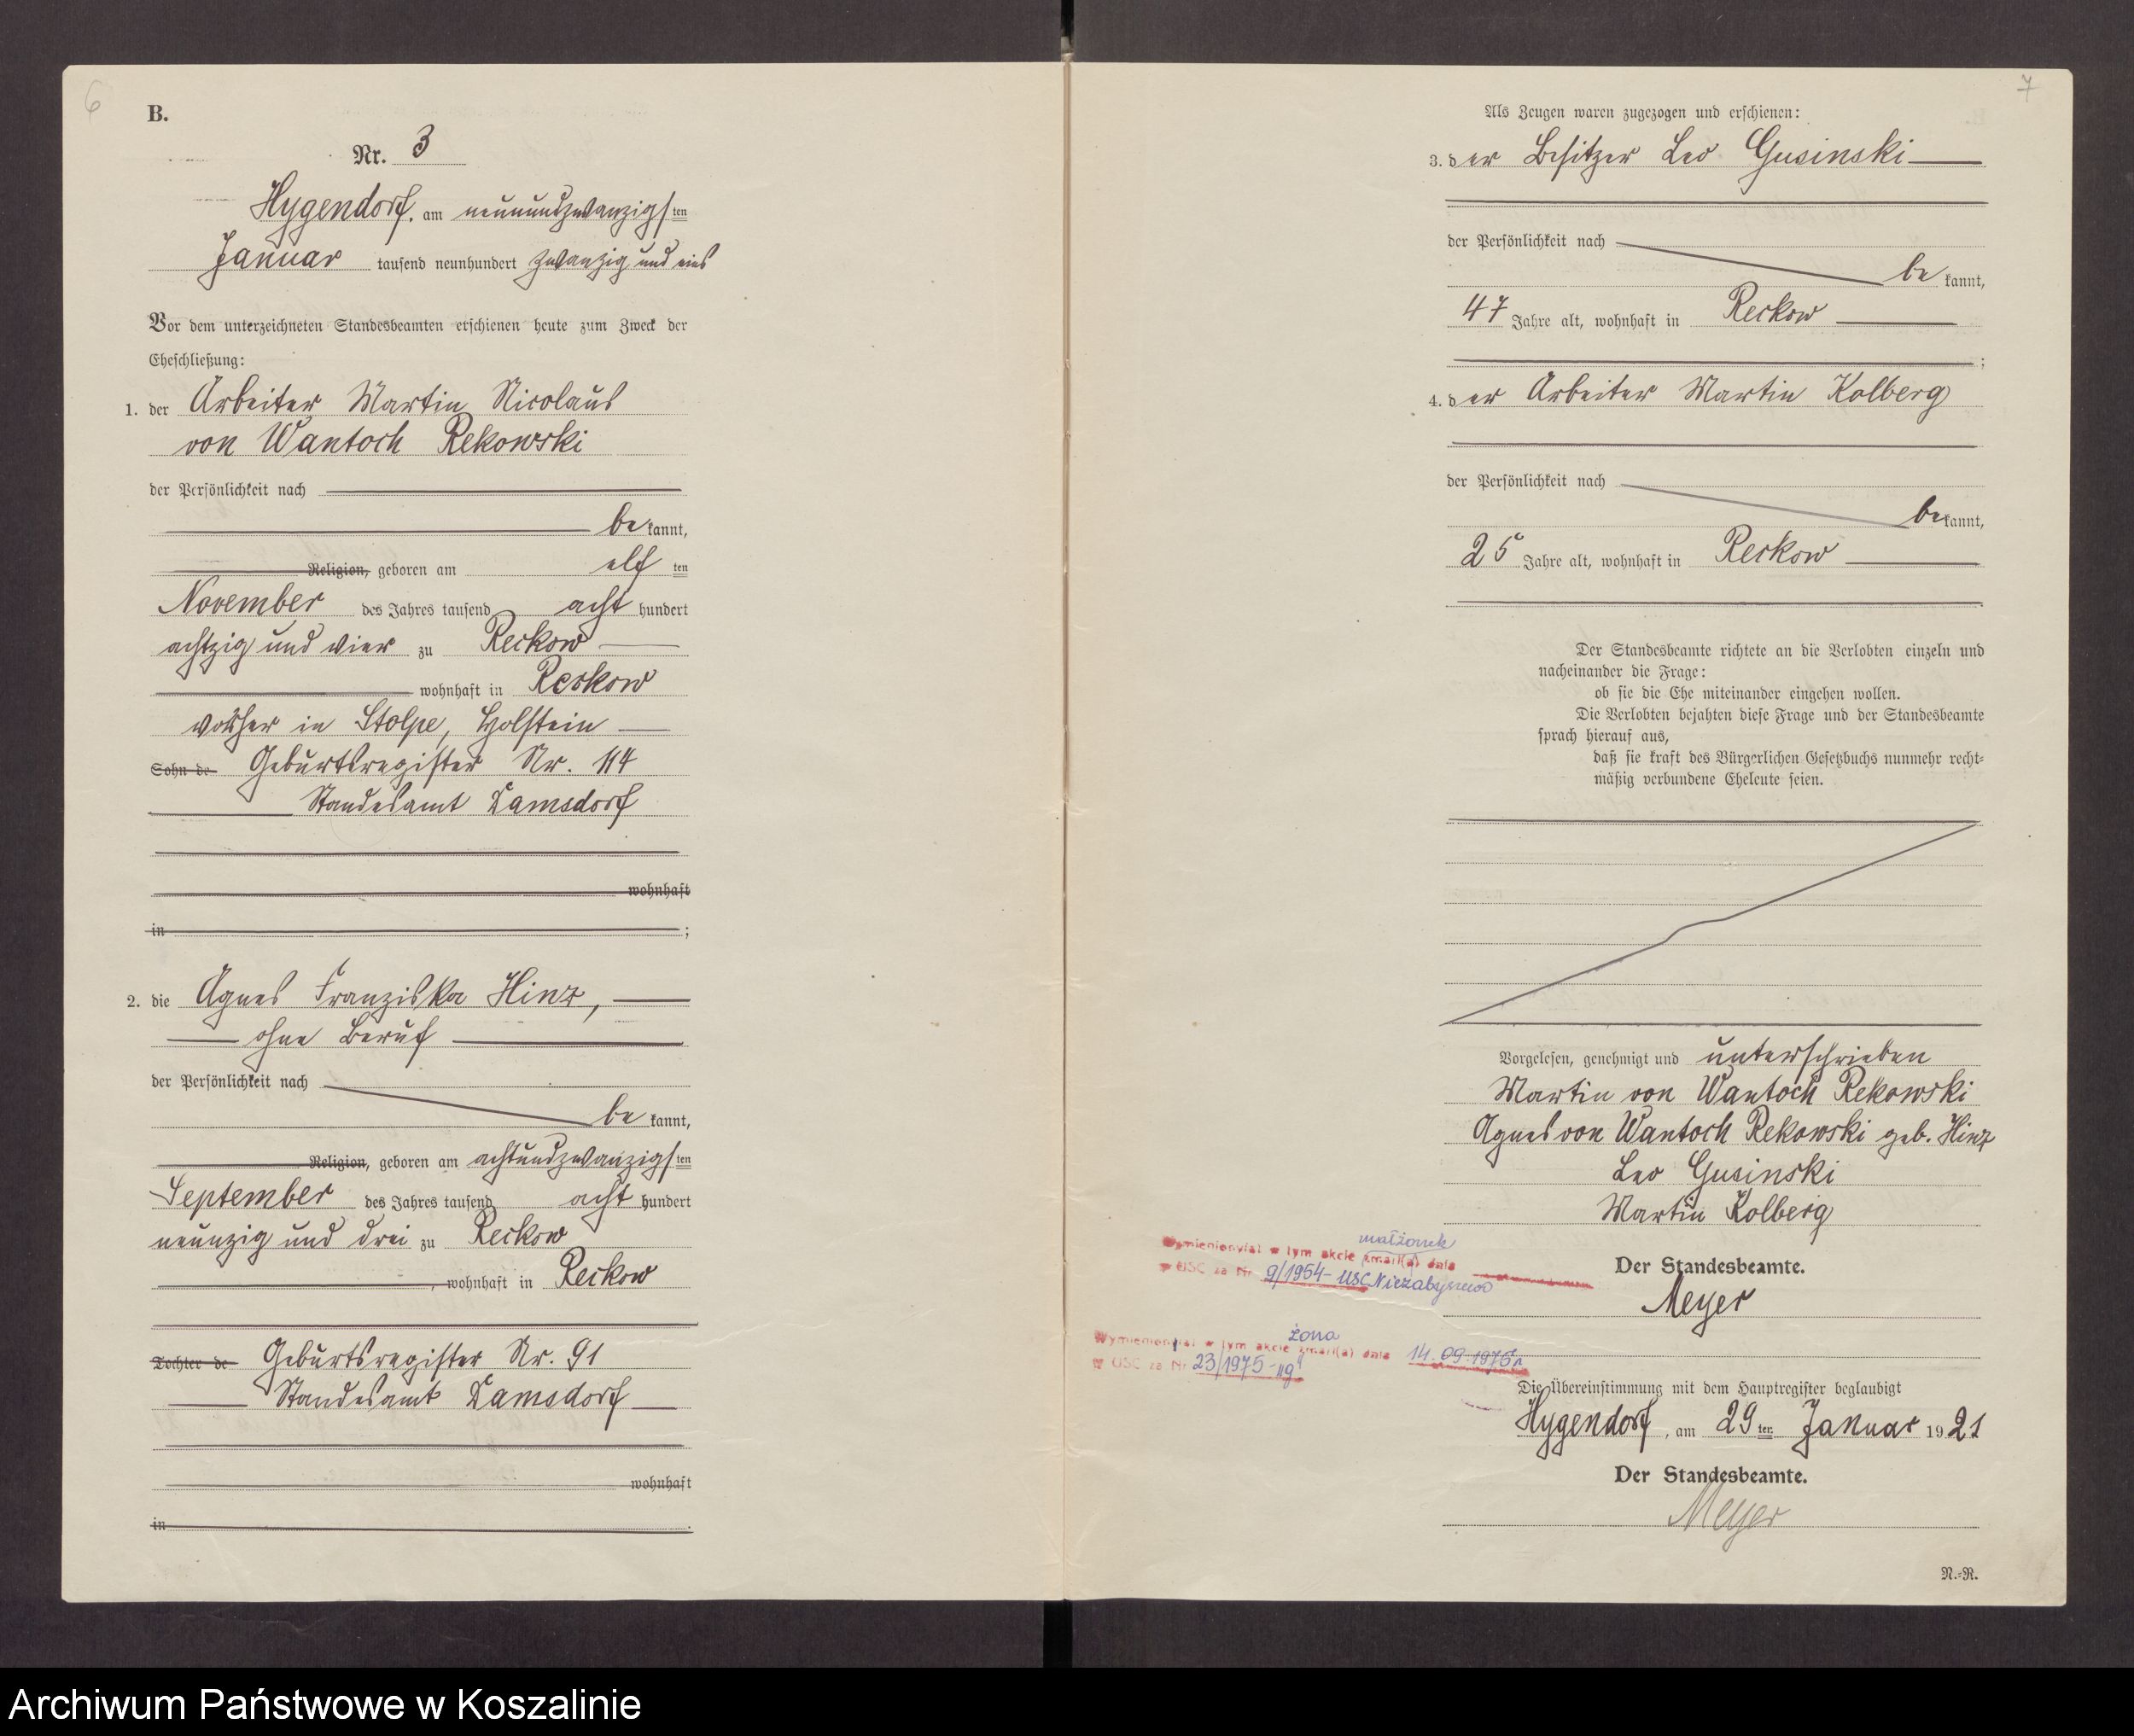 6
B.
Nr. 3
Hygendorf, am neunundzwanzigsten
Januar tausend neunhundert zwanzig und eins
Vor dem unterzeichneten Standesbeamten erschienen heute zum Zweck der
Eheschließung:
1. der Arbeiter Martin Nicolaus
von Wantoch Rekowski
der Persönlichkeit nach
be kannt,
Religion, geboren am elf ten
November des Jahres tausend acht hundert
achtzig und vier zu Reckow
wohnhaft in Reckow
vorher in Stolpe, Holstein
Sohn de Geburtsregister Nr. 114
Standesamt Zamsdorf
wohnhaft
in ;
2. die Agnes Franziska Hinz,
ohne Beruf
der Persönlichkeit nach
be kannt,
Religion, geboren am achtundzwanzigsten
September des Jahres tausend acht hundert
neunzig und drei zu Reckow
, wohnhaft in Reckow
Tochter de Geburtsregister Nr. 91
Standesamt Zamsdorf
wohnhaft
in .
7
Als Zeugen waren zugezogen und erschienen:
3. der Besitzer Leo Gusinski
der Persönlichkeit nach
be kannt,
47 Jahre alt, wohnhaft in Reckow
;
4. der Arbeiter Martin Kolberg
der Persönlichkeit nach
be kannt,
25 Jahre alt, wohnhaft in Reckow
Der Standesbeamte richtete an die Verlobten einzeln und
nacheinander die Frage:
ob sie die Ehe miteinander eingehen wollen.
Die Verlobten bejahten diese Frage und der Standesbeamte
sprach hierauf aus,
daß sie kraft des Bürgerlichen Gesetzbuchs nunmehr recht-
mäßig verbundene Eheleute seien.
Vorgelesen, genehmigt und unterschrieben
Martin von Wantoch Rekowski
Agnes von Wantoch Rekowski geb. Hinz
Leo Gusinski
Martin Kolberg
małżonek
Wymieniony(a) w tym akcie zmarł(a) dnia
w USC za Nr 9/1954 - USC Niezabyszewo
Der Standesbeamte.
Meyer
żona
Wymieniony(a) w tym akcie zmarł(a) dnia 14.09.1975r
w USC za Nr 23/1975 - "g"
Die Übereinstimmung mit dem Hauptregister beglaubigt
Hygendorf, am 29 ten Januar 1921
Der Standesbeamte.
Meyer
N.-R.
Archiwum Państwowe w Koszalinie